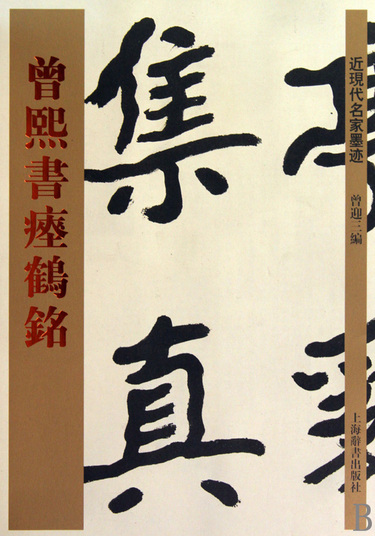 曾熙書瘞鶴銘
近現代名家墨迹
曾迎三編
上海辭書出版社
集
真
B